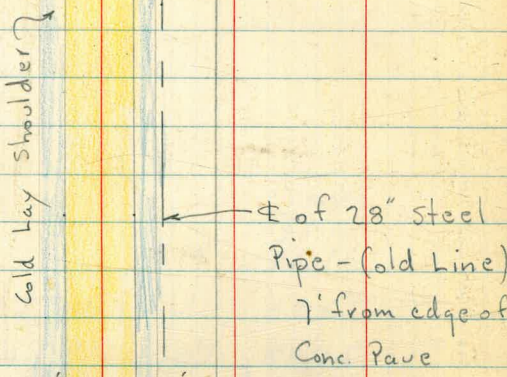 Cold Lay Shoulder
℄ of 28" Steel
Pipe - (old Line)
7' from edge of
Conc. Pave